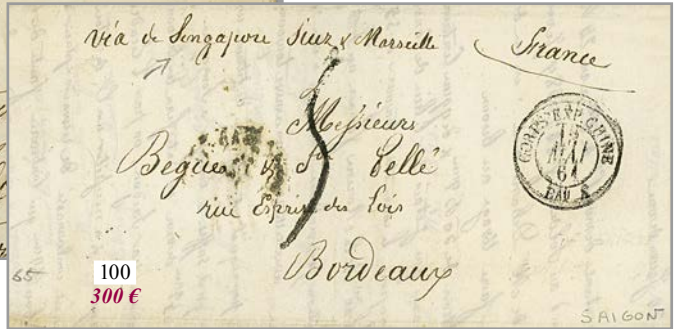 via de Singapore Suez & Marseille
France
Messieurs
Begué & St Tellé
rue Esprit des Lois
Bordeaux
5
CORPS EXP. CHINE
15
MAI
61
BAU A
65
100
300 €
SAIGON